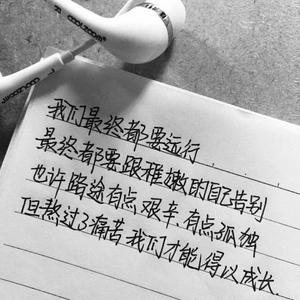 我们最终都要远行.....
最终都要跟稚嫩的自己告别
也许路途有点艰辛.有点孤独
但熬过了痛苦我们才能得以成长.